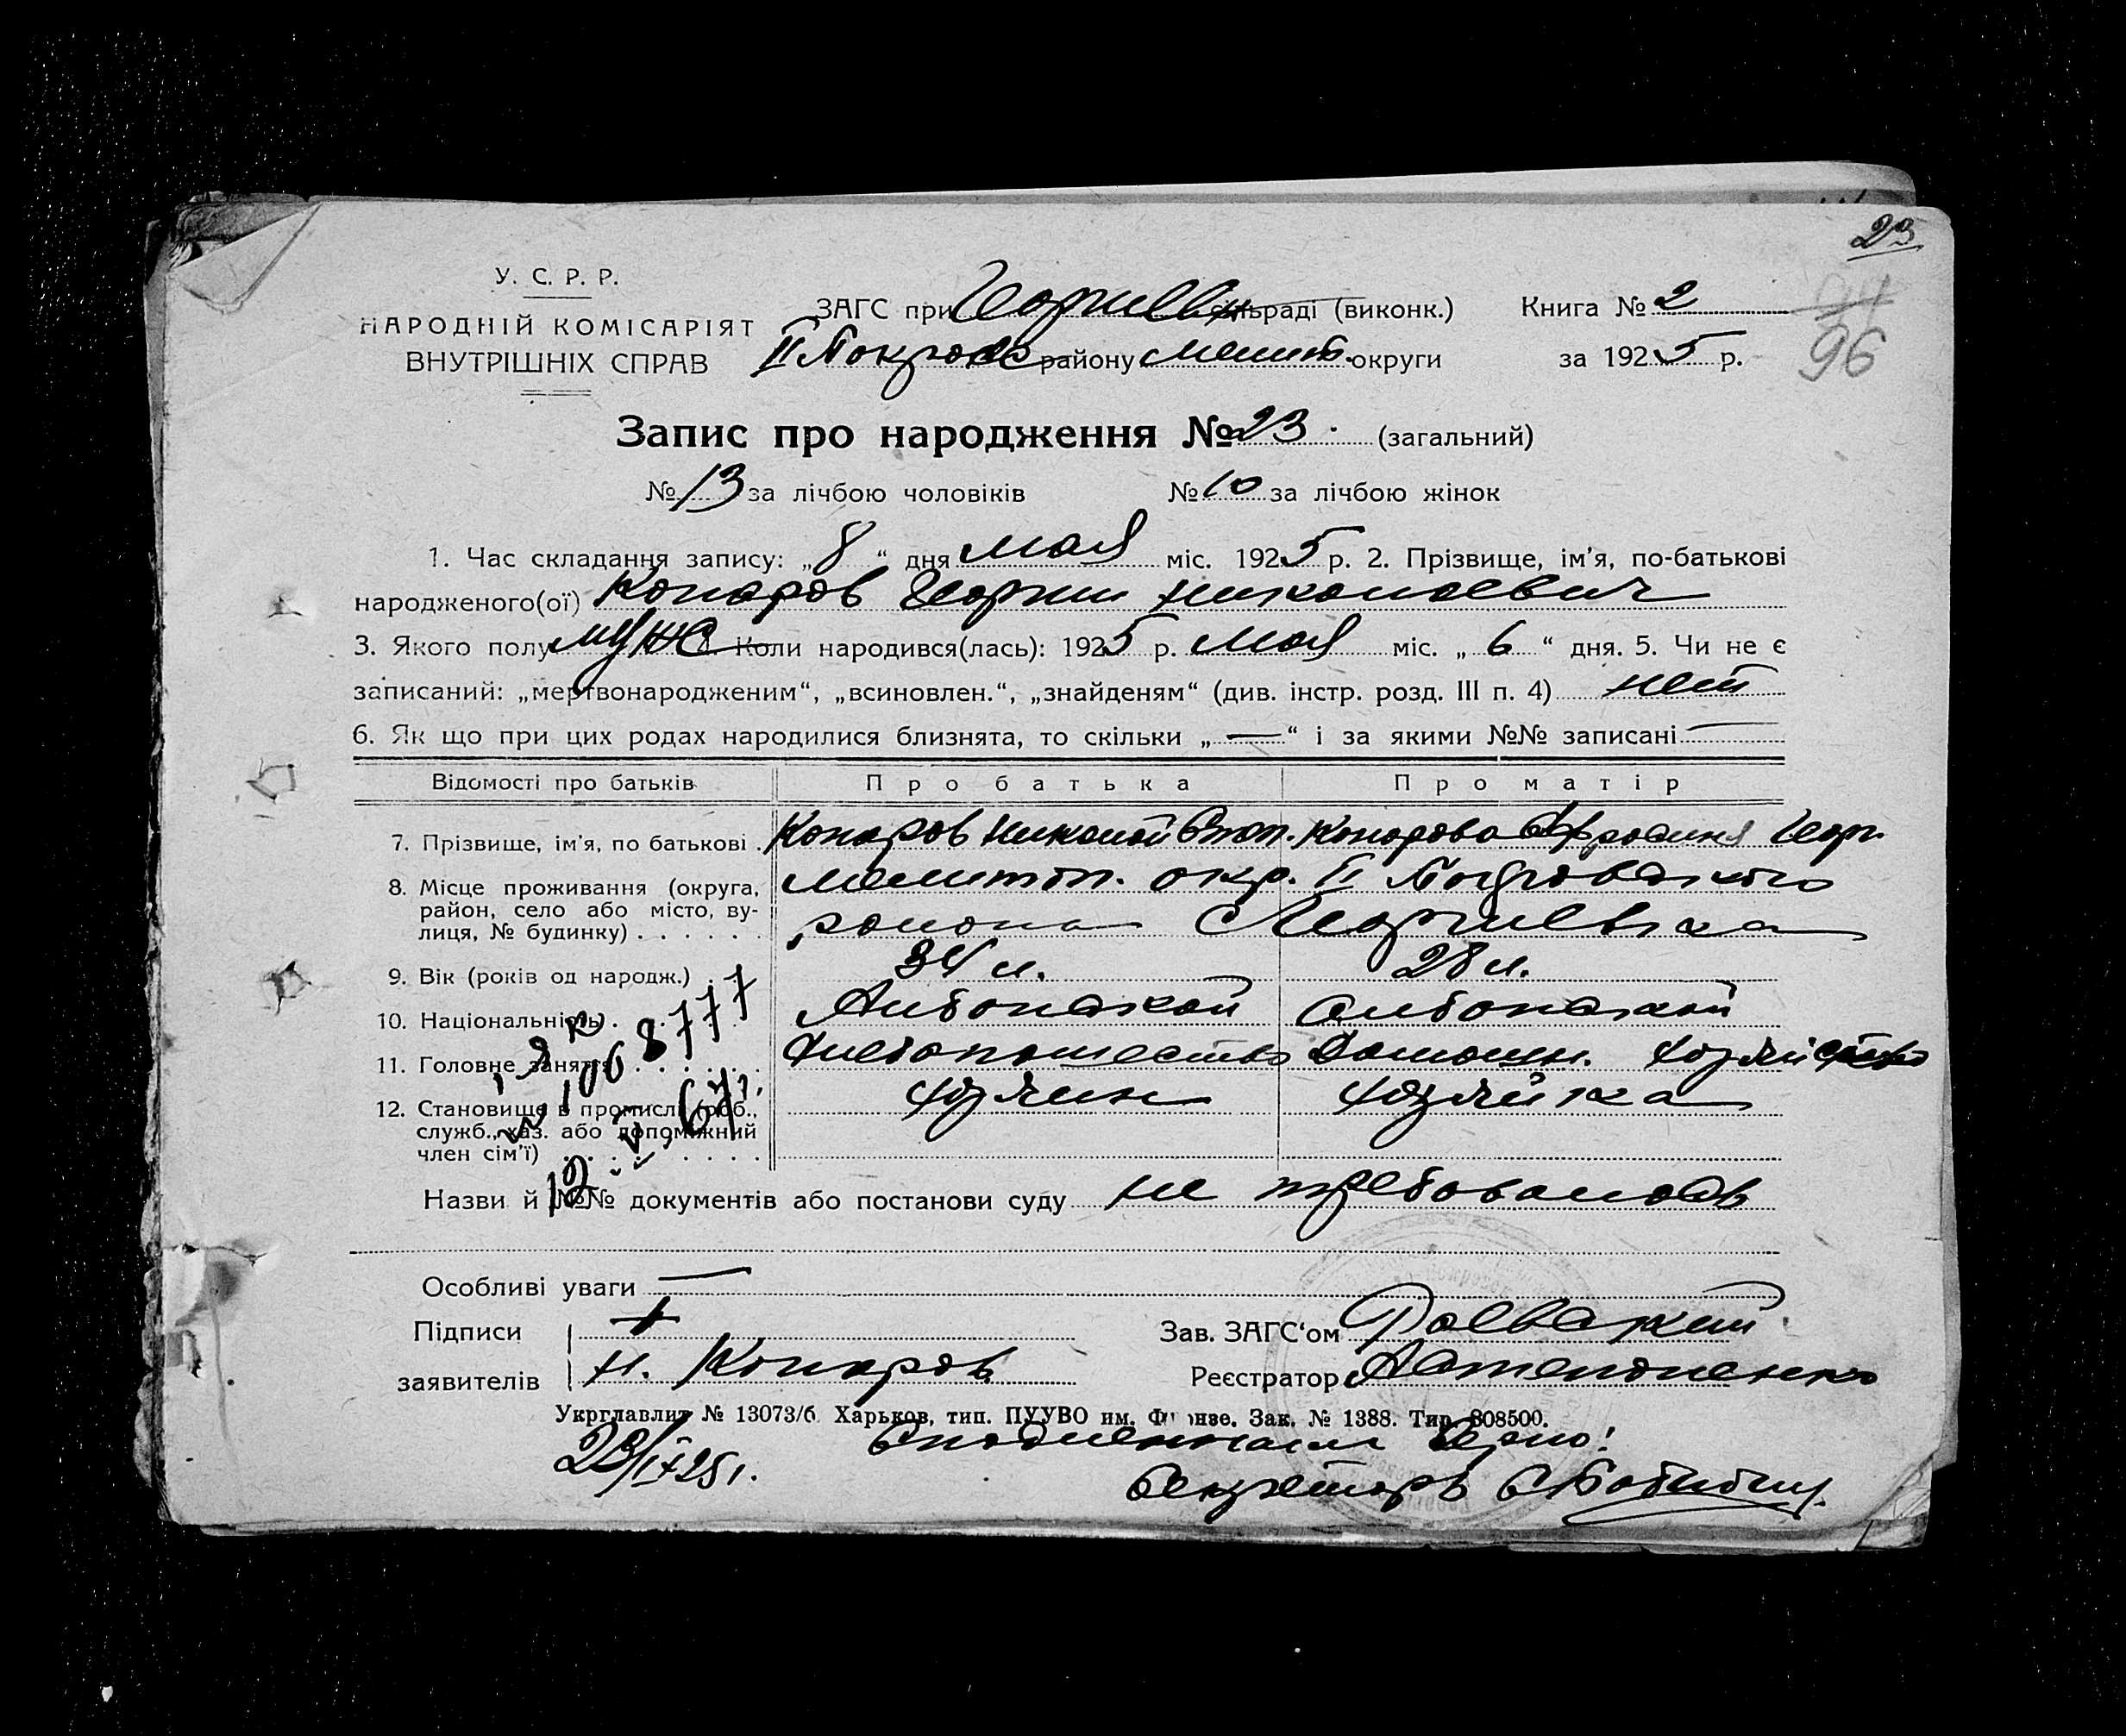 23
У. С. Р. Р.
НАРОДНІЙ КОМІСАРІЯТ
ВНУТРІШНІХ СПРАВ
ЗАГС при Георгиевск. сільраді (виконк.)
Книга № 2
94
II Покровск району Мелит. округи
за 1925 р.
96
Запис про народження № 23. (загальний)
№ 13 за лічбою чоловіків № 10 за лічбою жінок
1. Час складання запису: „8“ дня мая міс. 1925 р. 2. Прізвище, ім'я, по-батькові
народженого(ої) Копаров Георгии Николаевич
3. Якого полу муж Коли народився(лась): 1925 р. мая міс. „6“ дня. 5. Чи не є
записаний: „мертвонародженим“, „всиновлен.“, „знайденям“ (див. інстр. розд. III п. 4) нет
6. Як що при цих родах народилися близнята, то скільки „—“ і за якими №№ записані —
Відомості про батьків Про батька Про матір
7. Прізвище, ім'я, по батькові . Копаров Николай Степ. Копарова Ефросиния Георг.
8. Місце проживання (округа, район, село або місто, вулиця, № будинку) . . . . . . Мелитоп. окр. II Покровского
района Георгиевка
9. Вік (років од народж.) . . 34 л. 28 л.
10. Національність . . . . Албанской Албанской
11. Головне заняття . . . . . Хлебопашество Домашн. хозяйство
12. Становище в промислі (роб., служб., хаз. або допоміжний член сім'ї) . . . . . . . . хозяин хозяйка
I ЯК
№ 1068777
12. V. 67г.
Назви й №№ документів або постанови суду не требовалось
Особливі уваги —
Підписи +
заявителів Н. Копаров
Зав. ЗАГС'ом
Реєстратор
Укрглавлит № 13073/б. Харьков, тип. ПУУВО им. Фрунзе. Зак. № 1388. Тир. 808500.
23/IX 25 г. С подлинным верно!
Секретарь